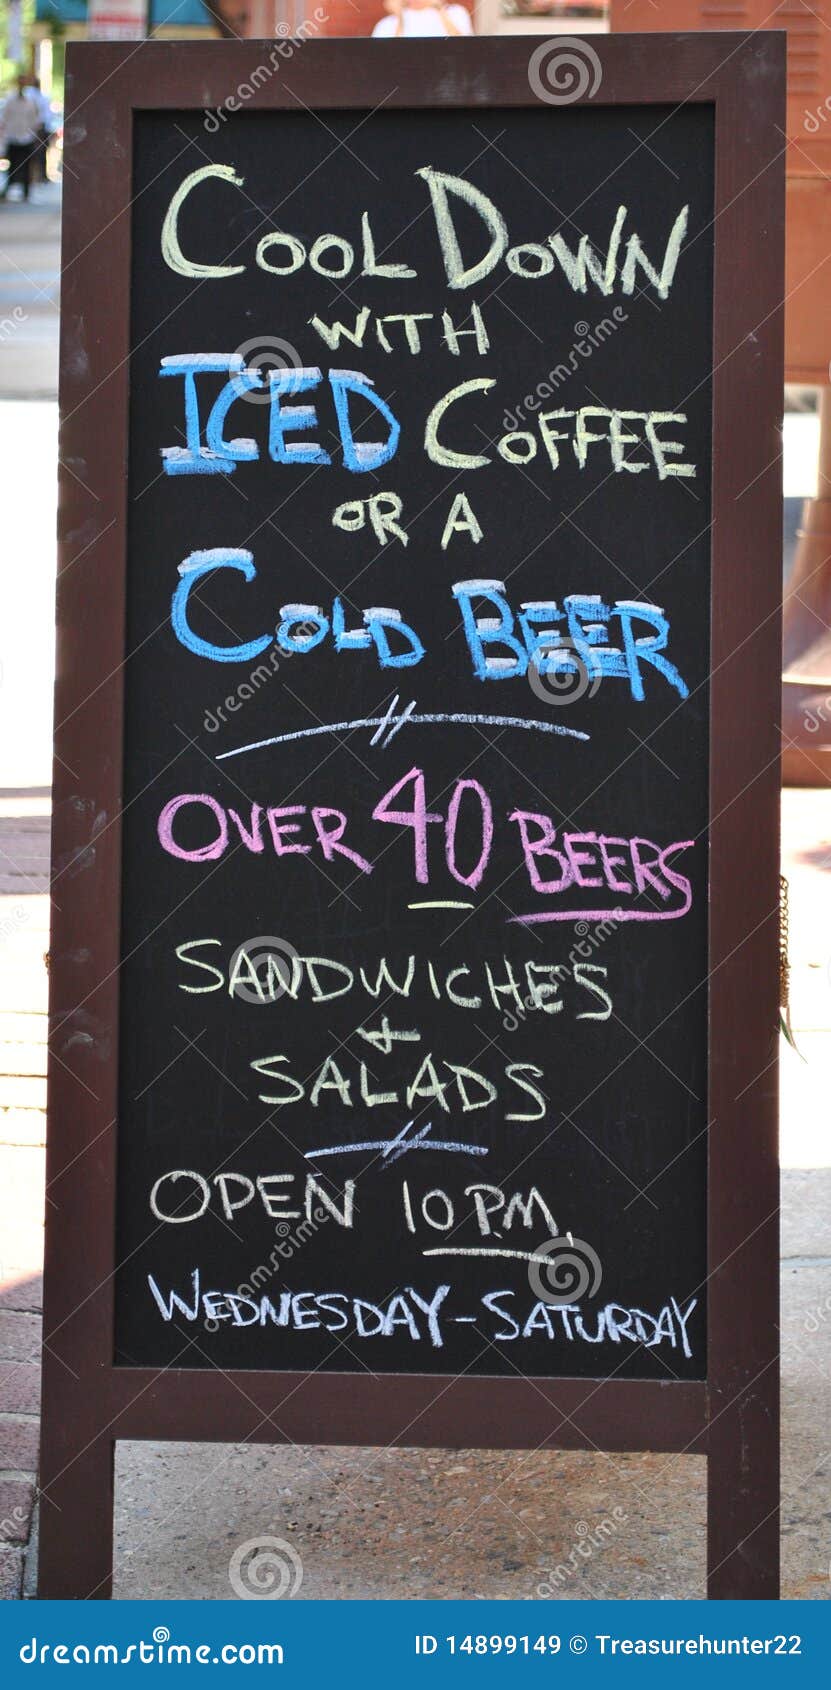 COOL DOWN
WITH
ICED COFFEE
OR A
COLD BEER
OVER 40 BEERS
SANDWICHES
+
SALADS
OPEN 10 P.M.
WEDNESDAY - SATURDAY
dreamstime.com
ID 14899149 © Treasurehunter22